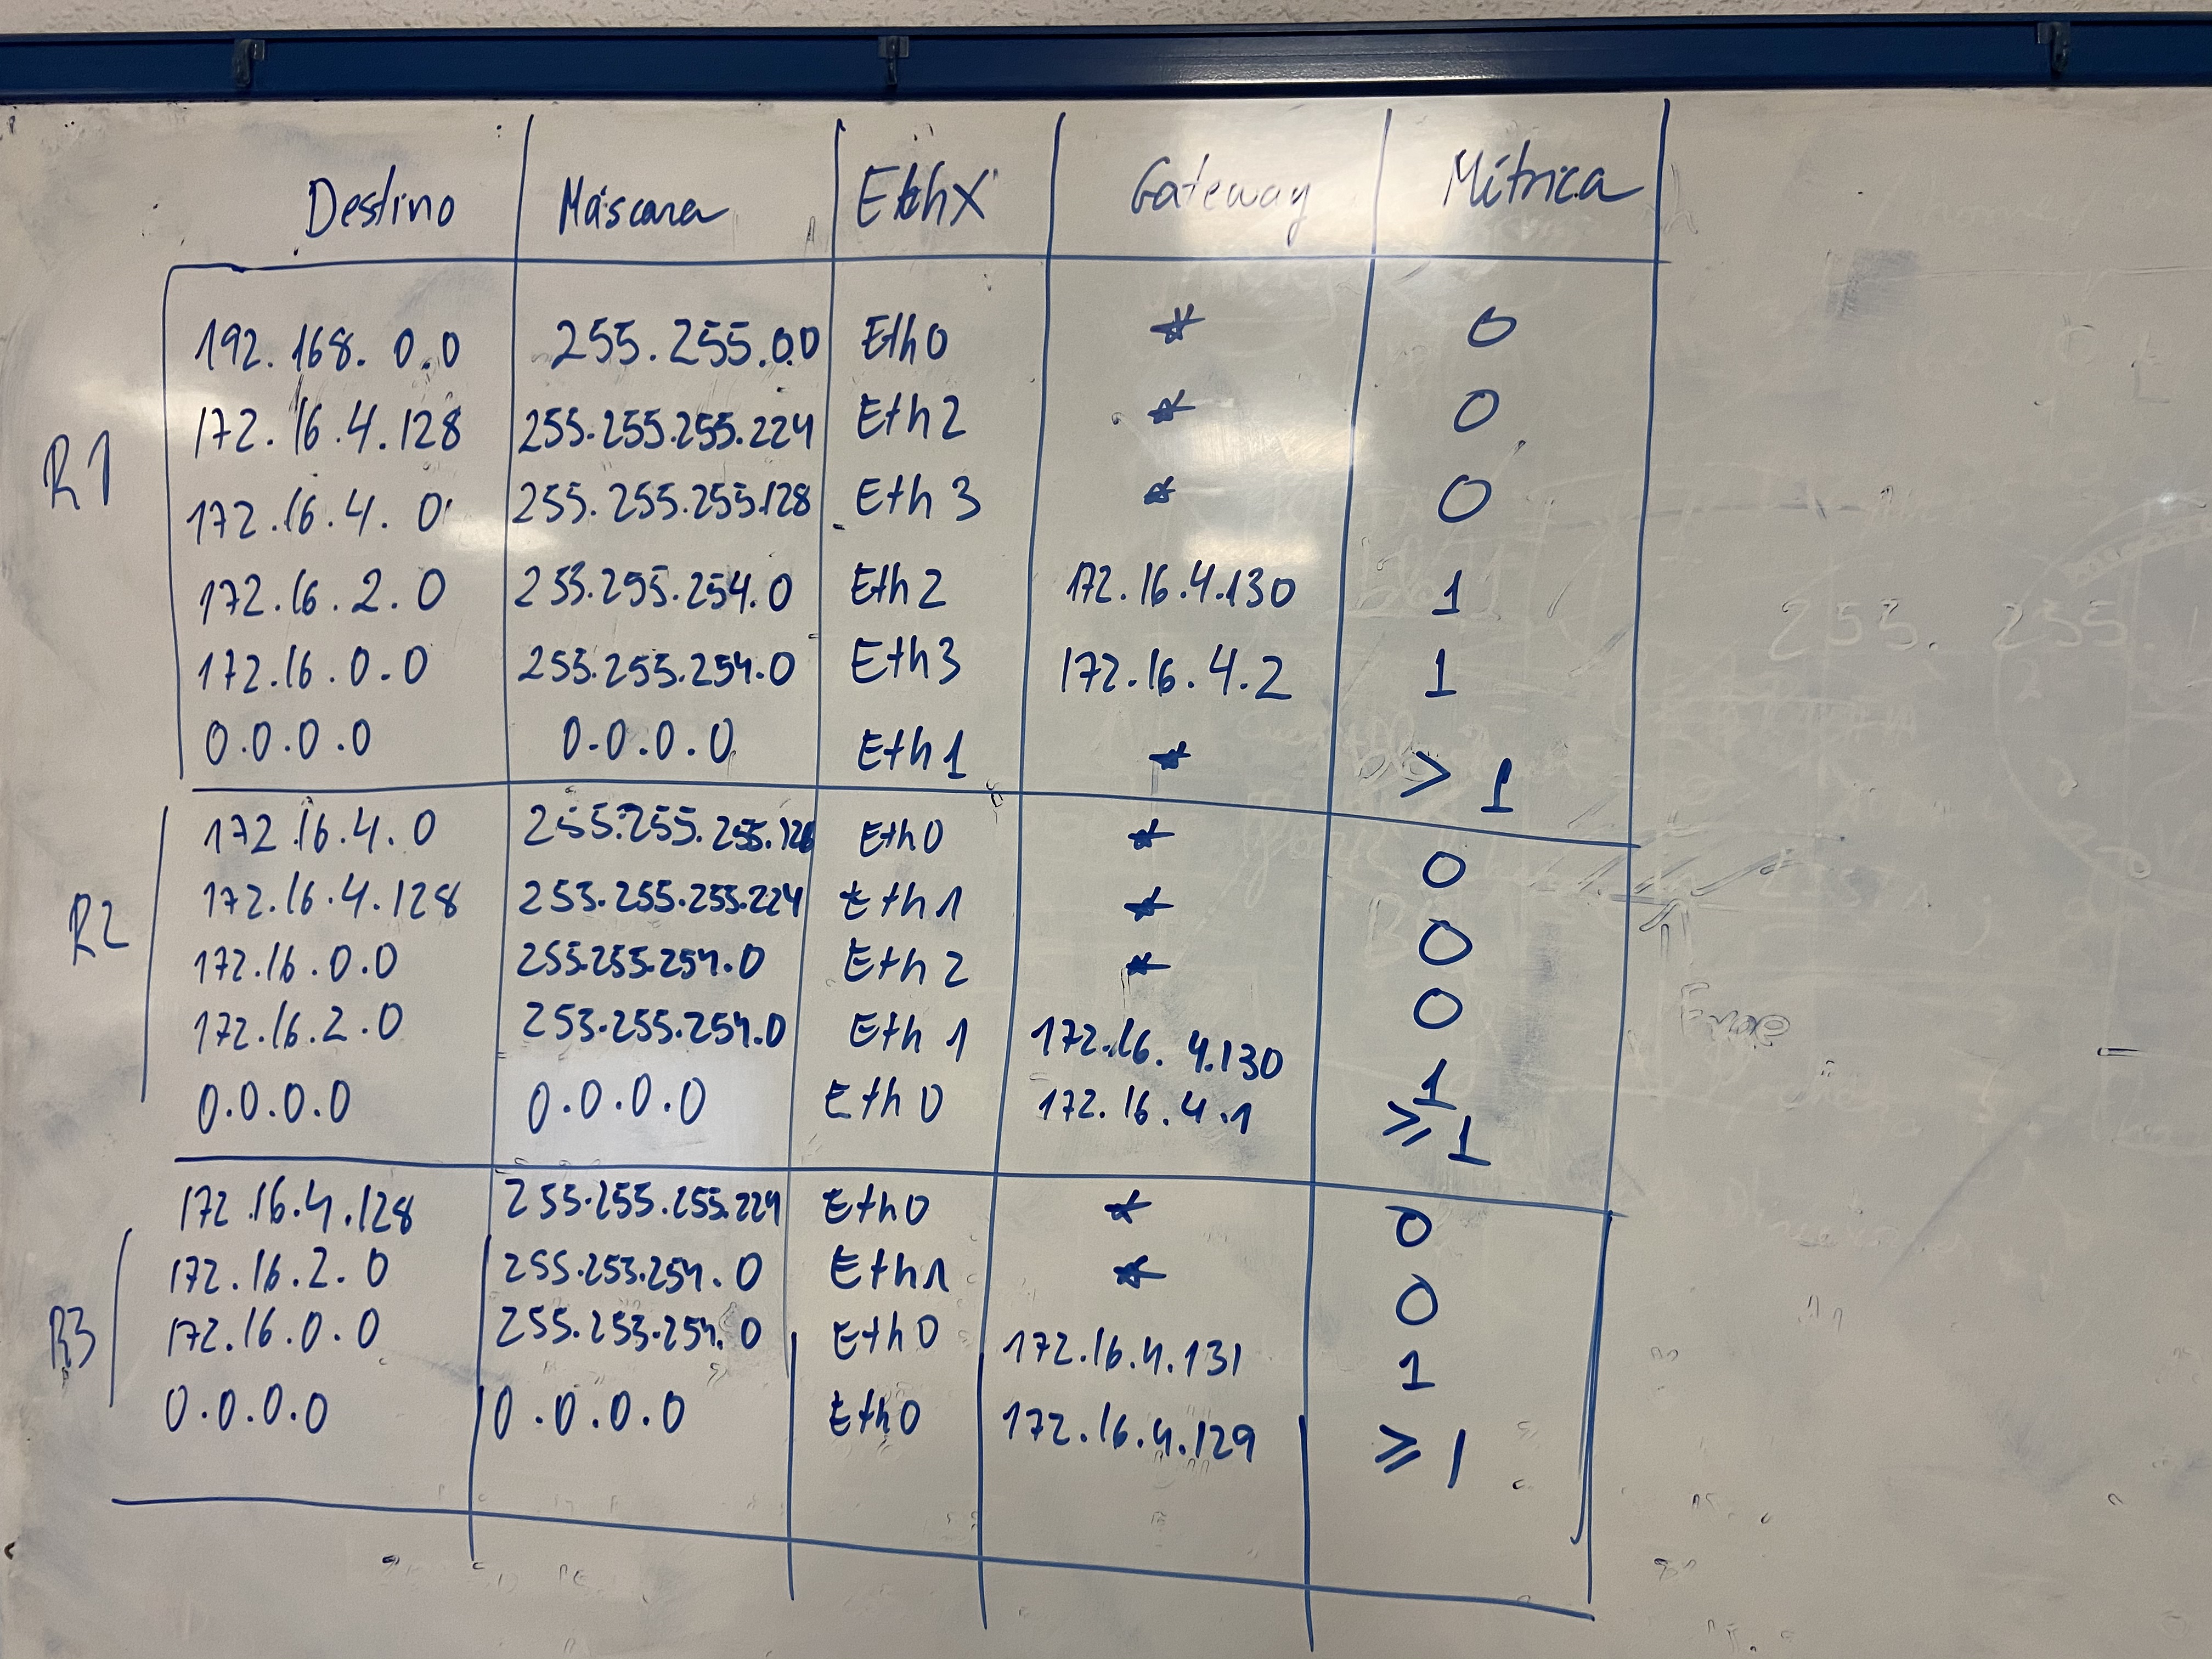 Destino Máscara EthX Gateway Métrica
R1
192.168.0.0 255.255.0.0 Eth0 * 0
172.16.4.128 255.255.255.224 Eth2 * 0
172.16.4.0 255.255.255.128 Eth3 * 0
172.16.2.0 255.255.254.0 Eth2 172.16.4.130 1
172.16.0.0 255.255.254.0 Eth3 172.16.4.2 1
0.0.0.0 0.0.0.0 Eth1 * > 1
R2
172.16.4.0 255.255.255.128 Eth0 * 0
172.16.4.128 255.255.255.224 Eth1 * 0
172.16.0.0 255.255.254.0 Eth2 * 0
172.16.2.0 255.255.254.0 Eth1 172.16.4.130 1
0.0.0.0 0.0.0.0 Eth0 172.16.4.1 ≥ 1
R3
172.16.4.128 255.255.255.224 Eth0 * 0
172.16.2.0 255.255.254.0 Eth1 * 0
172.16.0.0 255.255.254.0 Eth0 172.16.4.131 1
0.0.0.0 0.0.0.0 Eth0 172.16.4.129 ≥ 1
255. 255.